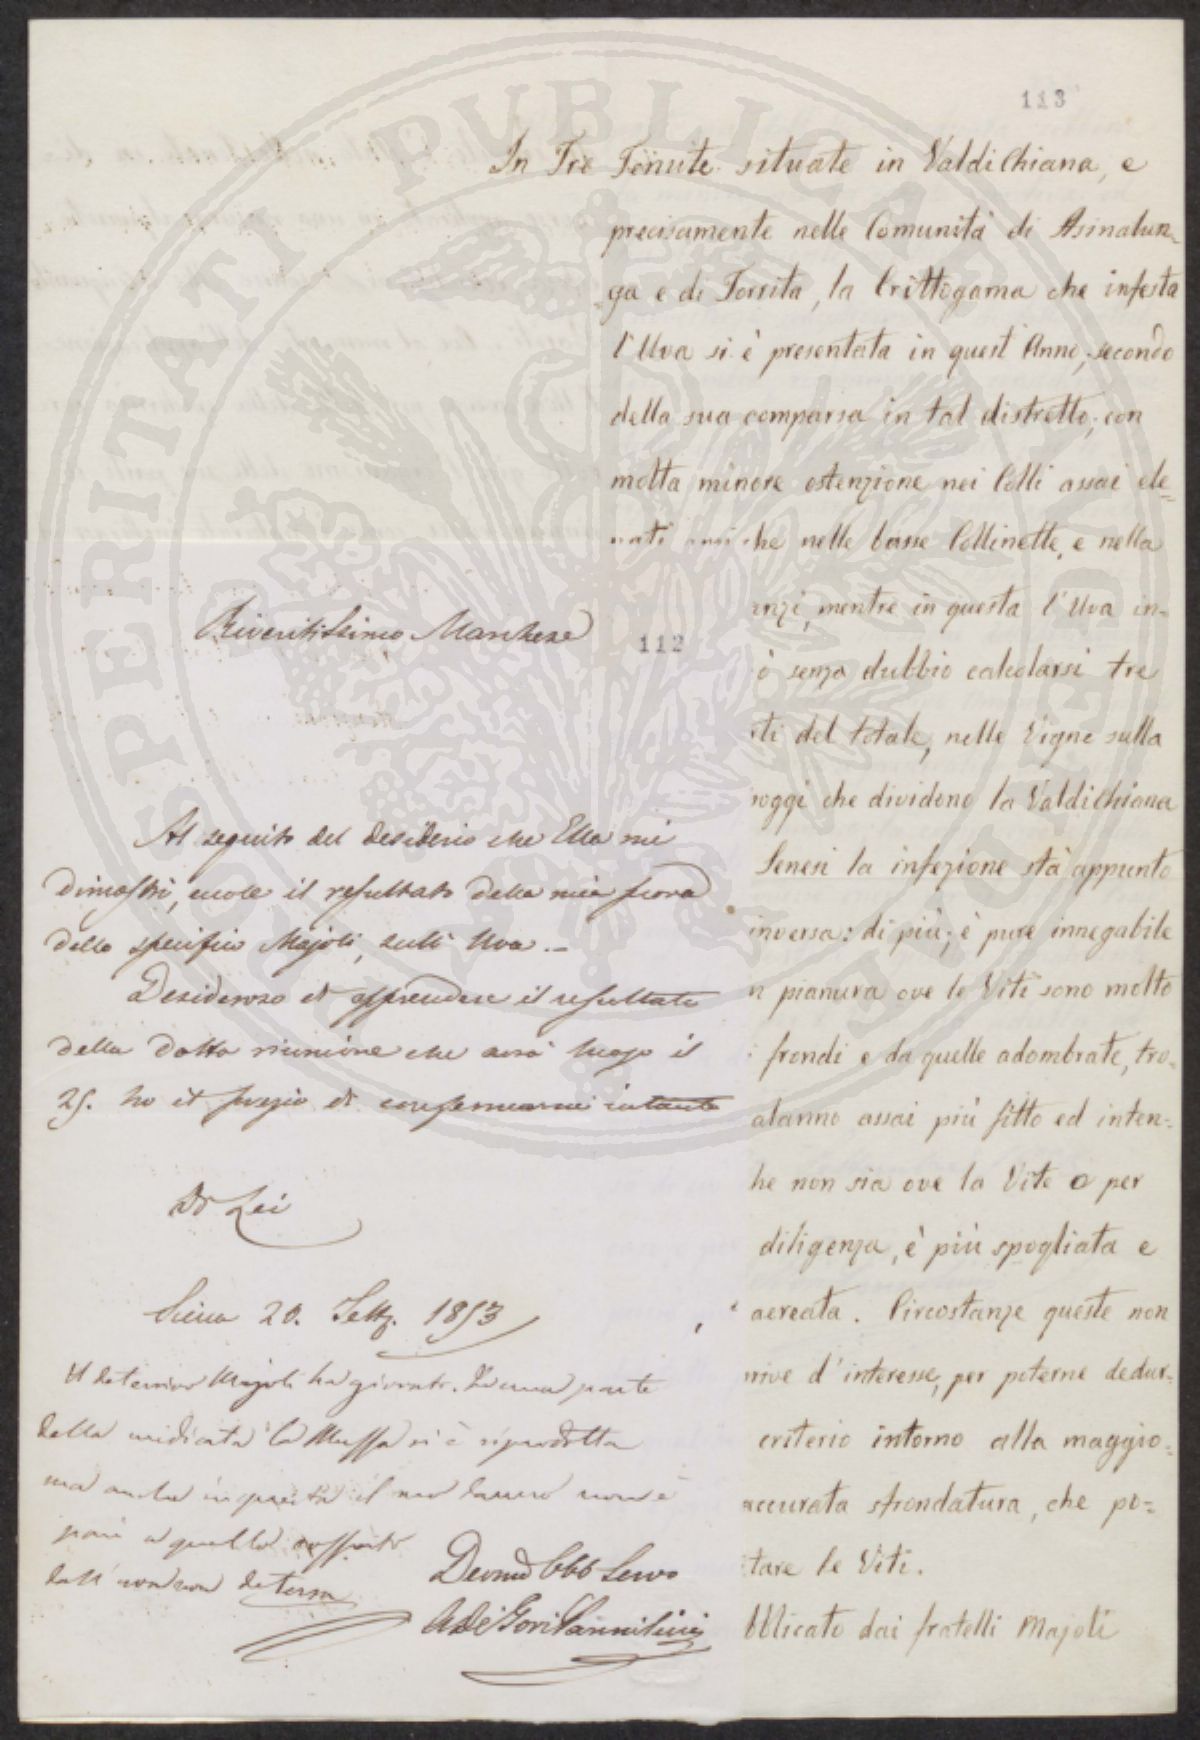 113
In Tre Tenute situate in Valdichiana, e
precisamente nelle Comunità di Asinalun=
ga e di Torrita, la Crittogama che infesta
l'Uva si è presentata in quest'Anno, secondo
della sua comparsa in tal distretto, con
molta minore estenzione nei Colli assai ele=
vati che nelle basse Collinette, e nella
anzi, mentre in questa l'Uva in=
ò senza dubbio calcolarsi tre
ti del totale, nelle Vigne sulla
oggi che dividono la Valdichiana
Senesi la infezione stà appunto
inversa: di più, è pure innegabile
n pianura ove le Viti sono molto
frondi e da quelle adombrate, tro=
alanno assai più fitto ed inten=
he non sia ove la Vite o per
diligenza, è più spogliata e
aereata. Circostanze queste non
prive d'interesse, per poterne dedur=
criterio intorno alla maggio=
accurata sfrondatura, che po=
tare le Viti.
bblicato dai fratelli Majoli
112
Riveritissimo Marchese
Al seguito del desiderio che Ella mi
dimostrò, eccole il resultato della mia prova
dello specifico Majoli, sull'Uva. –
Desideroso di apprendere il resultato
della dotta riunione che avrà luogo il
25. ho il pregio di confermarmi intanto
Di Lei
Siena 20. Sette. 1853
Majoli ha giovato. In una parte
della medicata la Muffa si è riprodotta
ma anche in questa il
a quello sofferto
dall'
Devmo Obb Servo
A De' Gori Pannilini
PROSPERITATI PUBLICAE AUGENDAE